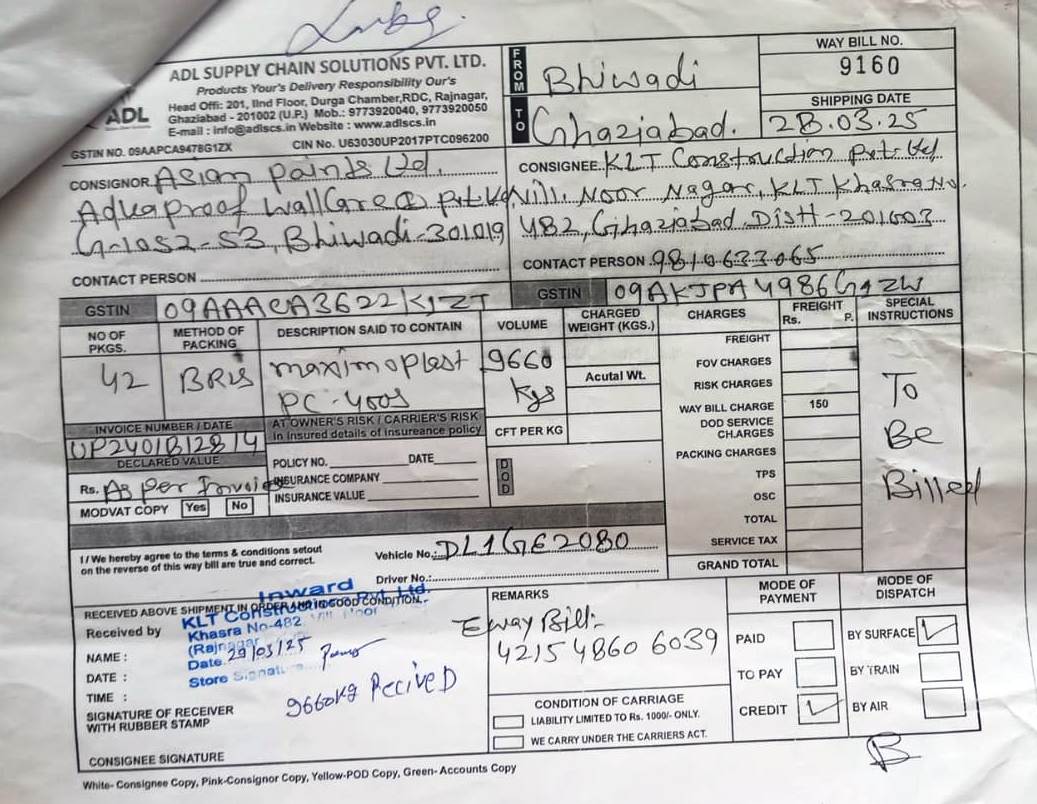 ADL
ADL SUPPLY CHAIN SOLUTIONS PVT. LTD.
Products Your's Delivery Responsibility Our's
Head Offi: 201, IInd Floor, Durga Chamber,RDC, Rajnagar,
Ghaziabad - 201002 (U.P.) Mob.: 9773920040, 9773920050
E-mail : info@adlscs.in Website : www.adlscs.in
GSTIN NO. 09AAPCA9478G1ZX CIN No. U63030UP2017PTC096200
FROM Bhiwadi
TO Ghaziabad.
WAY BILL NO.
9160
SHIPPING DATE
28.03.25
CONSIGNOR Asian Paints Ltd.
Aquaproof WallCare Pvt. Ltd
G-1052-53, Bhiwadi-301019
CONTACT PERSON
CONSIGNEE KLT Construction Pvt. Ltd
Vill. Noor Nagar, KLT Khasra No.
482, Ghaziabad, Distt-201003
CONTACT PERSON 9810633065
GSTIN 09AAACA3622K1ZT
GSTIN 09AKJPA4986G1ZW
NO OF PKGS. METHOD OF PACKING DESCRIPTION SAID TO CONTAIN VOLUME CHARGED WEIGHT (KGS.) CHARGES FREIGHT Rs. P. SPECIAL INSTRUCTIONS
42 maximoplast 9660
PC-400s kgs
Acutal Wt.
CFT PER KG
FREIGHT
FOV CHARGES
RISK CHARGES
WAY BILL CHARGE 150
DOD SERVICE CH.ARGES
PACKING CHARGES
TPS
OSC
TOTAL
SERVICE TAX
GRAND TOTAL
To
Be
Billed
INVOICE NUMBER / DATE
UP2401B12814
DECLARED VALUE
Rs. As per Invoice
MODVAT COPY Yes No
AT OWNER'S RISK / CARRIER'S RISK
In insured details of insureance policy
POLICY NO. DATE
INSURANCE COMPANY
INSURANCE VALUE
DOD
1 / We hereby agree to the terms & conditions setout
on the reverse of this way bill are true and correct.
Vehicle No.: DL1GE2080
Driver No.:
RECEIVED ABOVE SHIPMENT IN ORDER AND IN GOOD CONDITION.
Received by
NAME :
DATE :
TIME :
SIGNATURE OF RECEIVER
WITH RUBBER STAMP
CONSIGNEE SIGNATURE
Inward
KLT Construction Pvt. Ltd.
Khasra No-482 Vill Noor
(Rajnagar
Date 29/03/25
Store Signatu
9660kg Recived
REMARKS
Eway Bill:-
4215 4860 6039
CONDITION OF CARRIAGE
LIABILITY LIMITED TO Rs. 1000/- ONLY.
WE CARRY UNDER THE CARRIERS ACT.
MODE OF PAYMENT
PAID
TO PAY
CREDIT
MODE OF DISPATCH
BY SURFACE
BY TRAIN
BY AIR
B
White- Consignee Copy, Pink-Consignor Copy, Yellow-POD Copy, Green- Accounts Copy